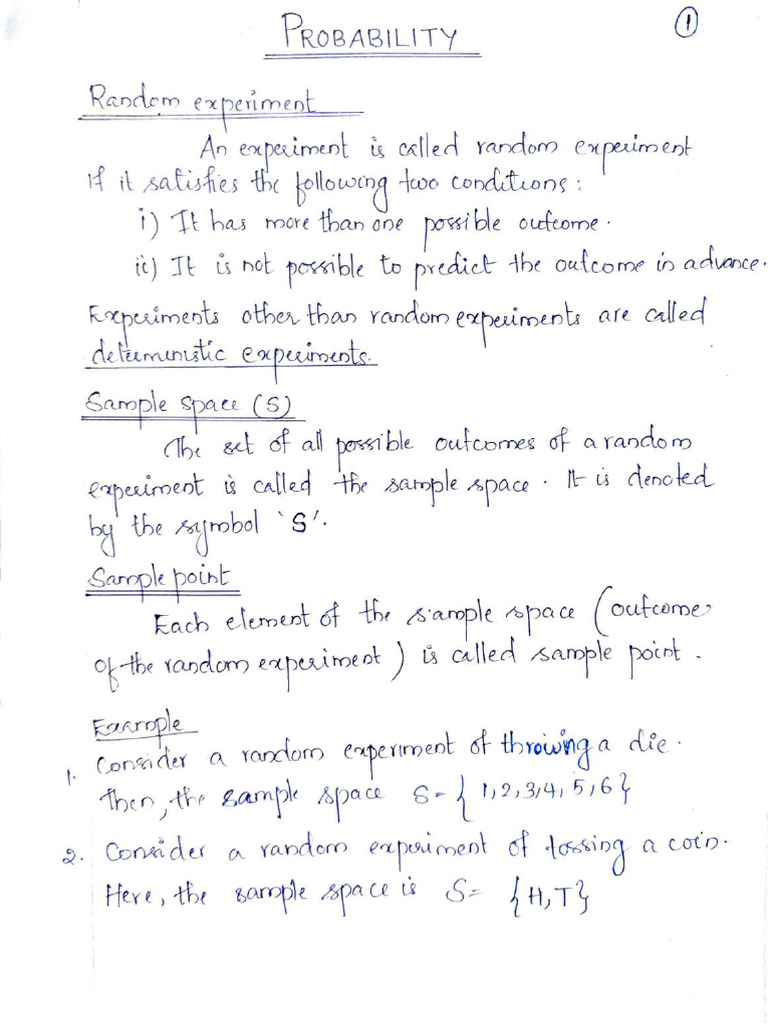 PROBABILITY
1
Random experiment
An experiment is called random experiment
if it satisfies the following two conditions:
i) It has more than one possible outcome.
ii) It is not possible to predict the outcome in advance.
Experiments other than random experiments are called
deterministic experiments.
Sample space (S)
The set of all possible outcomes of a random
experiment is called the sample space. It is denoted
by the symbol 'S'.
Sample point
Each element of the sample space (outcome
of the random experiment) is called sample point.
Example
1. Consider a random experiment of throwing a die.
Then, the sample space S = {1,2,3,4,5,6}
2. Consider a random experiment of tossing a coin.
Here, the sample space is S = {H,T}